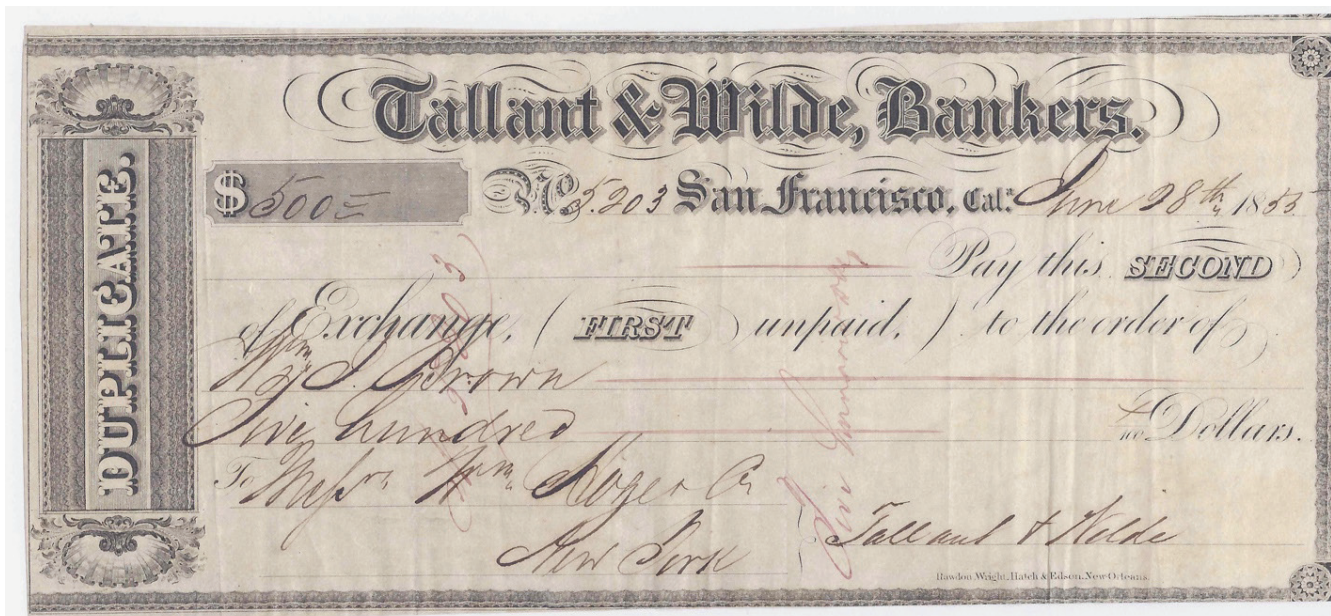 Tallant & Wilde, Bankers.
$ 500= No. 5203 San Francisco, Cal.ª June 28th 1855
Pay this SECOND
of Exchange, (FIRST unpaid,) to the order of
Wm. Brown
Five hundred /100 Dollars.
To Messrs Wm. Hoge & Co
New York
Tallant & Wilde
Rawdon, Wright, Hatch & Edson, New-Orleans.
DUPLICATE.
Five Hundred